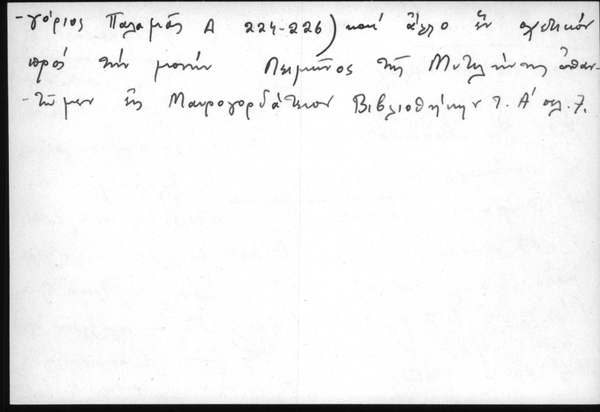 -γόριος Παλαμᾶς Α 224-226) καί ἄλλο ἕν σχετικόν
πρός τήν μονήν Λειμῶνος τῆς Μυτιλήνης ἀπαν-
-τῶμεν εἰς Μαυρογορδάτειον Βιβλιοθήκην τ. Α' σελ. 7.